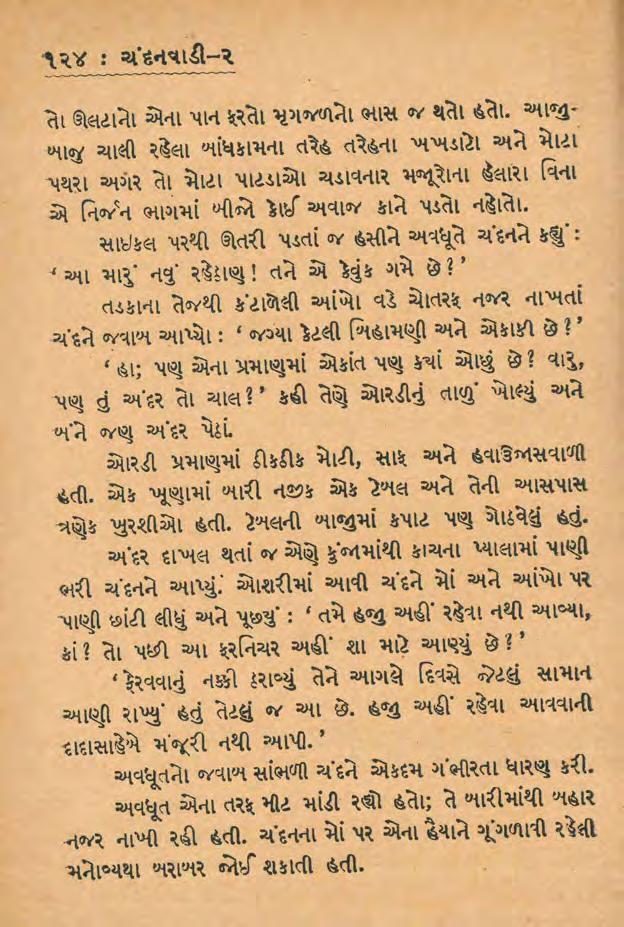 ૧૨૪ : ચંદનવાડી–૨
તો ઊલટાનો એના પાન ફરતો મૃગજળનો ભાસ જ થતો હતો. આજુ-
બાજુ ચાલી રહેલા બાંધકામના તરેહ તરેહના ખખડાટો અને મોટા
પથરા અગર તો મોટા પાટડાઓ ચડાવનાર મજૂરોના હેલારા વિના
એ નિર્જન ભાગમાં બીજો કોઈ અવાજ કાને પડતો નહોતો.
સાઇકલ પરથી ઊતરી પડતાં જ હસીને અવધૂતે ચંદનને કહ્યું :
‘ આ મારું નવું રહેઠાણ ! તને એ કેવુંક ગમે છે ? ’
તડકાના તેજથી કંટાળેલી આંખો વડે ચોતરફ નજર નાખતાં
ચંદને જવાબ આપ્યો : ‘ જગ્યા કેટલી બિહામણી અને એકાકી છે ? ’
‘ હા; પણ એના પ્રમાણમાં એકાંત પણ ક્યાં ઓછું છે ? વારુ,
પણ તું અંદર તો ચાલ ? ’ કહી તેણે ઓરડીનું તાળું ખોલ્યું અને
બંને જણ અંદર પેઠાં.
ઓરડી પ્રમાણમાં ઠીકઠીક મોટી, સાફ અને હવાઉજાસવાળી
હતી. એક ખૂણામાં બારી નજીક એક ટેબલ અને તેની આસપાસ
ત્રણેક ખુરશીઓ હતી. ટેબલની બાજુમાં કપાટ પણ ગોઠવેલું હતું.
અંદર દાખલ થતાં જ એણે કુંજામાંથી કાચના પ્યાલામાં પાણી
ભરી ચંદનને આપ્યું. ઓશરીમાં આવી ચંદને મોં અને આંખો પર
પાણી છાંટી લીધું અને પૂછયું : ‘ તમે હજુ અહીં રહેવા નથી આવ્યા,
કાં ? તો પછી આ ફરનિચર અહીં શા માટે આણ્યું છે ? ’
‘ ફેરવવાનું નક્કી ઠરાવ્યું તેને આગલે દિવસે જેટલું સામાન
આણી રાખ્યું હતું તેટલું જ આ છે. હજુ અહીં રહેવા આવવાની
દાદાસાહેબે મંજૂરી નથી આપી. ’
અવધૂતનો જવાબ સાંભળી ચંદને એકદમ ગંભીરતા ધારણ કરી.
અવધૂત એના તરફ મીટ માંડી રહ્યો હતો; તે બારીમાંથી બહાર
નજર નાખી રહી હતી. ચંદનના મોં પર એના હૈયાને ગૂંગળાવી રહેલી
મનોવ્યથા બરાબર જોઈ શકાતી હતી.